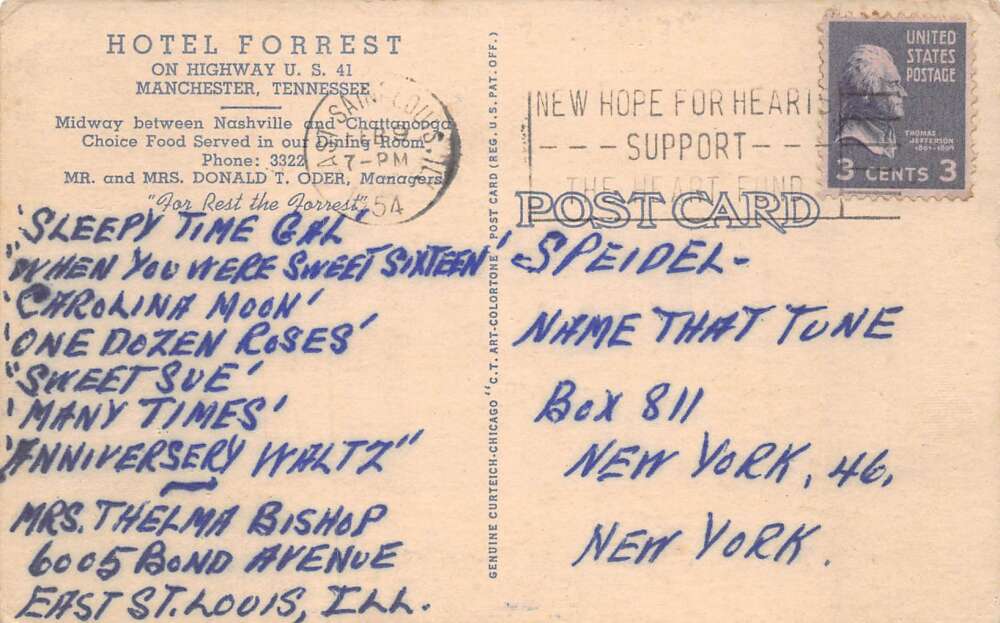 HOTEL FORREST
ON HIGHWAY U. S. 41
MANCHESTER, TENNESSEE
Midway between Nashville and Chattanooga
Choice Food Served in our Dining Room
Phone: 3322
MR. and MRS. DONALD T. ODER, Managers
"For Rest the Forrest"
SAINT LOUIS, ILL
9
7-PM
54
'SLEEPY TIME GAL'
"WHEN YOU WERE SWEET SIXTEEN'
'CAROLINA MOON'
'ONE DOZEN ROSES'
"SWEET SUE'
'MANY TIMES'
'ANNIVERSERY WALTZ"
MRS. THELMA BISHOP
6005 BOND AVENUE
EAST ST. LOUIS, ILL.
GENUINE CURTEICH-CHICAGO "C.T. ART-COLORTONE" POST CARD (REG. U.S. PAT. OFF.)
NEW HOPE FOR HEARTS
SUPPORT
THE HEART FUND
UNITED
STATES
POSTAGE
THOMAS
JEFFERSON
1801-1809
3 CENTS 3
POST CARD
-SPEIDEL-
NAME THAT TUNE
BOX 811
NEW YORK, 46,
NEW YORK.